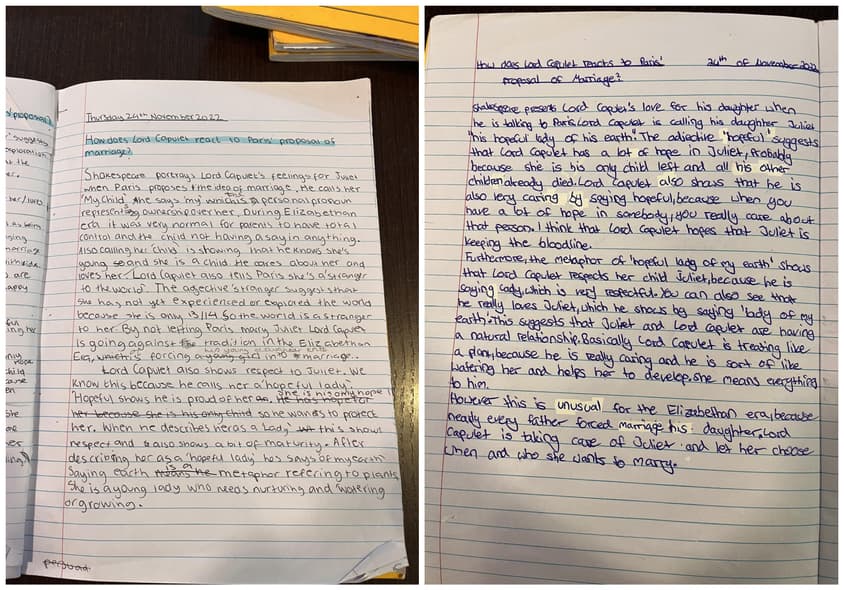 Thursday 24th November 2022
How does Lord Capulet react to Paris' proposal of
marriage?
Shakespeare portrays Lord Capulet's feelings for Juliet
when Paris proposes the idea of marriage. He calls her
'My child', she says 'my' which is a personal pronoun
representing ownership over her. During Elizabethan
era it was very normal for parents to have total
control and the child not having a say in anything.
Also calling her 'child' is showing that he knows she's
young so and she is a child. He cares about her and
loves her. Lord Capulet also tells Paris she's a 'stranger
to the world'. The adjective 'stranger' suggest that
she has not yet experienced or explored the world
because she is only 13/14 so the world is a stranger
to her. By not letting Paris marry Juliet Lord Capulet
is going against the tradition in the Elizabethan
Era, which is forcing a young girl into marriage.
Lord Capulet also shows respect to Juliet. We
know this because he calls her a 'hopeful lady'.
she is his only hope
'Hopeful' shows he is proud of her as, He has hope for
her because she is his only child so he wants to protect
her. When he describes her as a 'Lady' this shows
respect and also shows a bit of maturity. After
describing her as a 'hopeful lady' he says of my earth'
is a
Saying earth means he metaphor refering to plants
She is a young lady who needs nurturing and 'watering'
or growing.
persuad
How does Lord Capulet reacts to Paris' 24th of November 2022
proposal of Marriage?
Shakespeare presents Lord Capulet's love for his daughter when
he is talking to Paris. Lord Capulet is calling his daughter Juliet
"his hopeful lady of his earth". The adjective 'hopeful' suggests
that Lord Capulet has a lot of hope in Juliet, Probably
because she is his only child left and all his other
children already died. Lord Capulet also shows that he is
also very caring by saying hopeful, because when you
have a lot of hope in somebody, you really care about
that person. I think that Lord Capulet hopes that Juliet is
keeping the bloodline.
Furthermore, the metaphor of 'hopeful lady of my earth' shows
that Lord Capulet respects her child Juliet, because he is
saying lady, which is very respectful. You can also see that
he really loves Juliet, which he shows by saying 'lady of my
earth'. This suggests that Juliet and Lord Capulet are having
a natural relationship. Basically Lord Capulet is treating like
a plant, because he is really caring and he is sort of like
watering her and helps her to develop, she means everything
to him.
However this is unusual for the Elizabethan era, because
nearly every father forced marriage his daughter, Lord
Capulet is taking care of Juliet and let her choose
when and who she wants to marry.